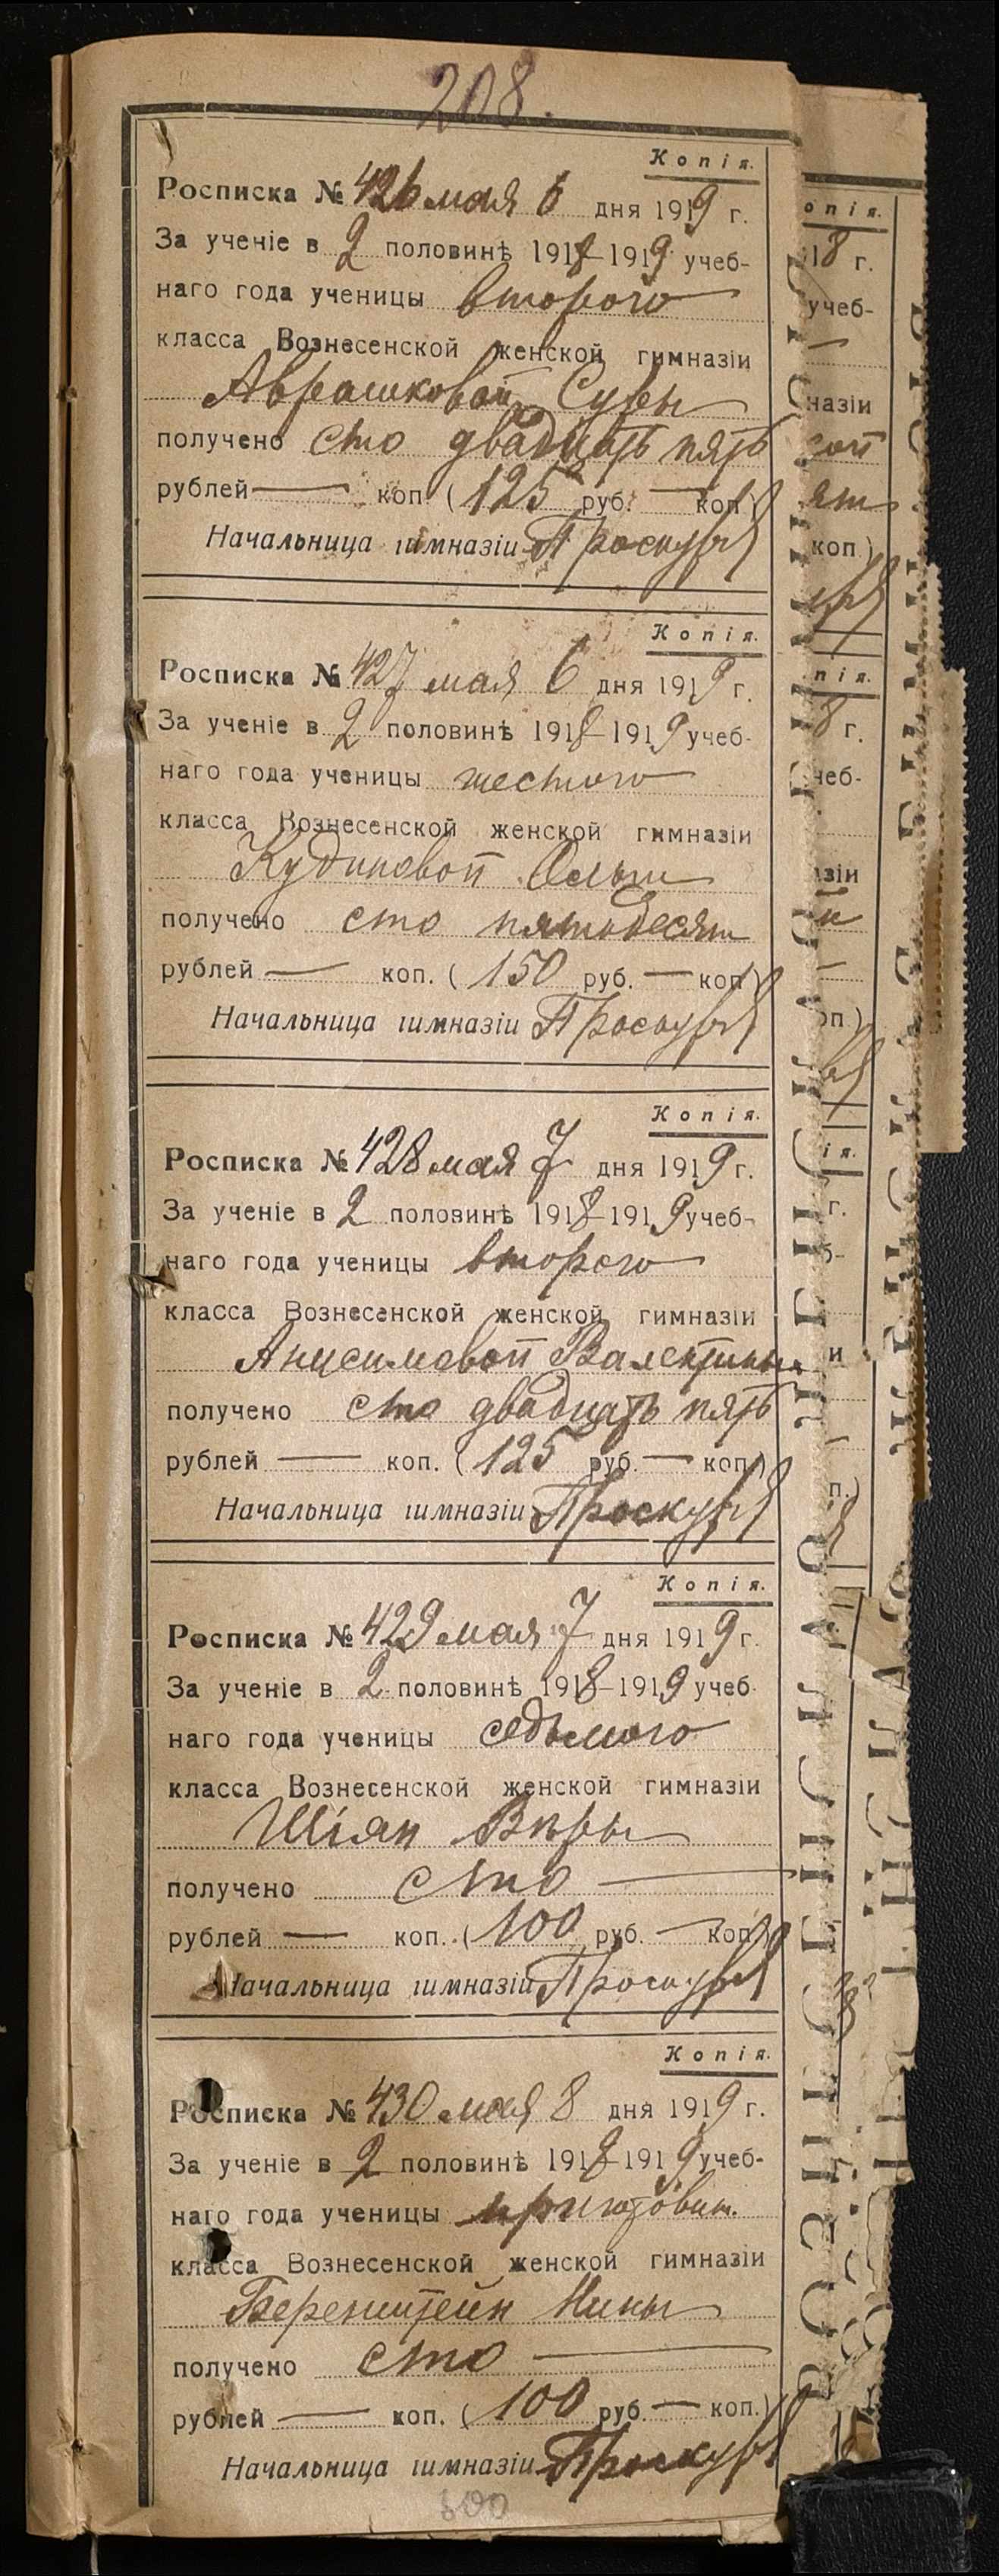 208.
Копія.
Росписка № 426 мая 6 дня 1919 г.
За ученіе в 2 половинѣ 1918-1919 учеб-
наго года ученицы второго
класса Вознесенской женской гимназіи
Аврашковой Суры
получено сто двадцать пять
рублей — коп. (125 руб. — коп.)
Начальница гимназіи П Проскур
Копія.
Росписка № 427 мая 6 дня 1919 г.
За ученіе в 2 половинѣ 1918-1919 учеб-
наго года ученицы шестого
класса Вознесенской женской гимназіи
Кудиновой Ольги
получено сто пятьдесят
рублей — коп. (150 руб. — коп.)
Начальница гимназіи
Копія.
Росписка № 428 мая 7 дня 1919 г.
За ученіе в 2 половинѣ 1918-1919 учеб-
наго года ученицы второго
класса Вознесенской женской гимназіи
Анисимовой Валентины
получено сто двадцать пять
рублей — коп. (125 руб. — коп.)
Начальница гимназіи
Копія.
Росписка № 429 мая 7 дня 1919 г.
За ученіе в 2 половинѣ 1918-1919 учеб-
наго года ученицы седьмого
класса Вознесенской женской гимназіи
Шіян Вѣры
получено сто —
рублей — коп. (100 руб. — коп.)
Начальница гимназіи
Копія.
Росписка № 430 мая 8 дня 1919 г.
За ученіе в 2 половинѣ 1918-1919 учеб-
наго года ученицы приготовит.
класса Вознесенской женской гимназіи
Беренштейн Нины
получено сто —
рублей — коп. (100 руб. — коп.)
Начальница гимназіи
600